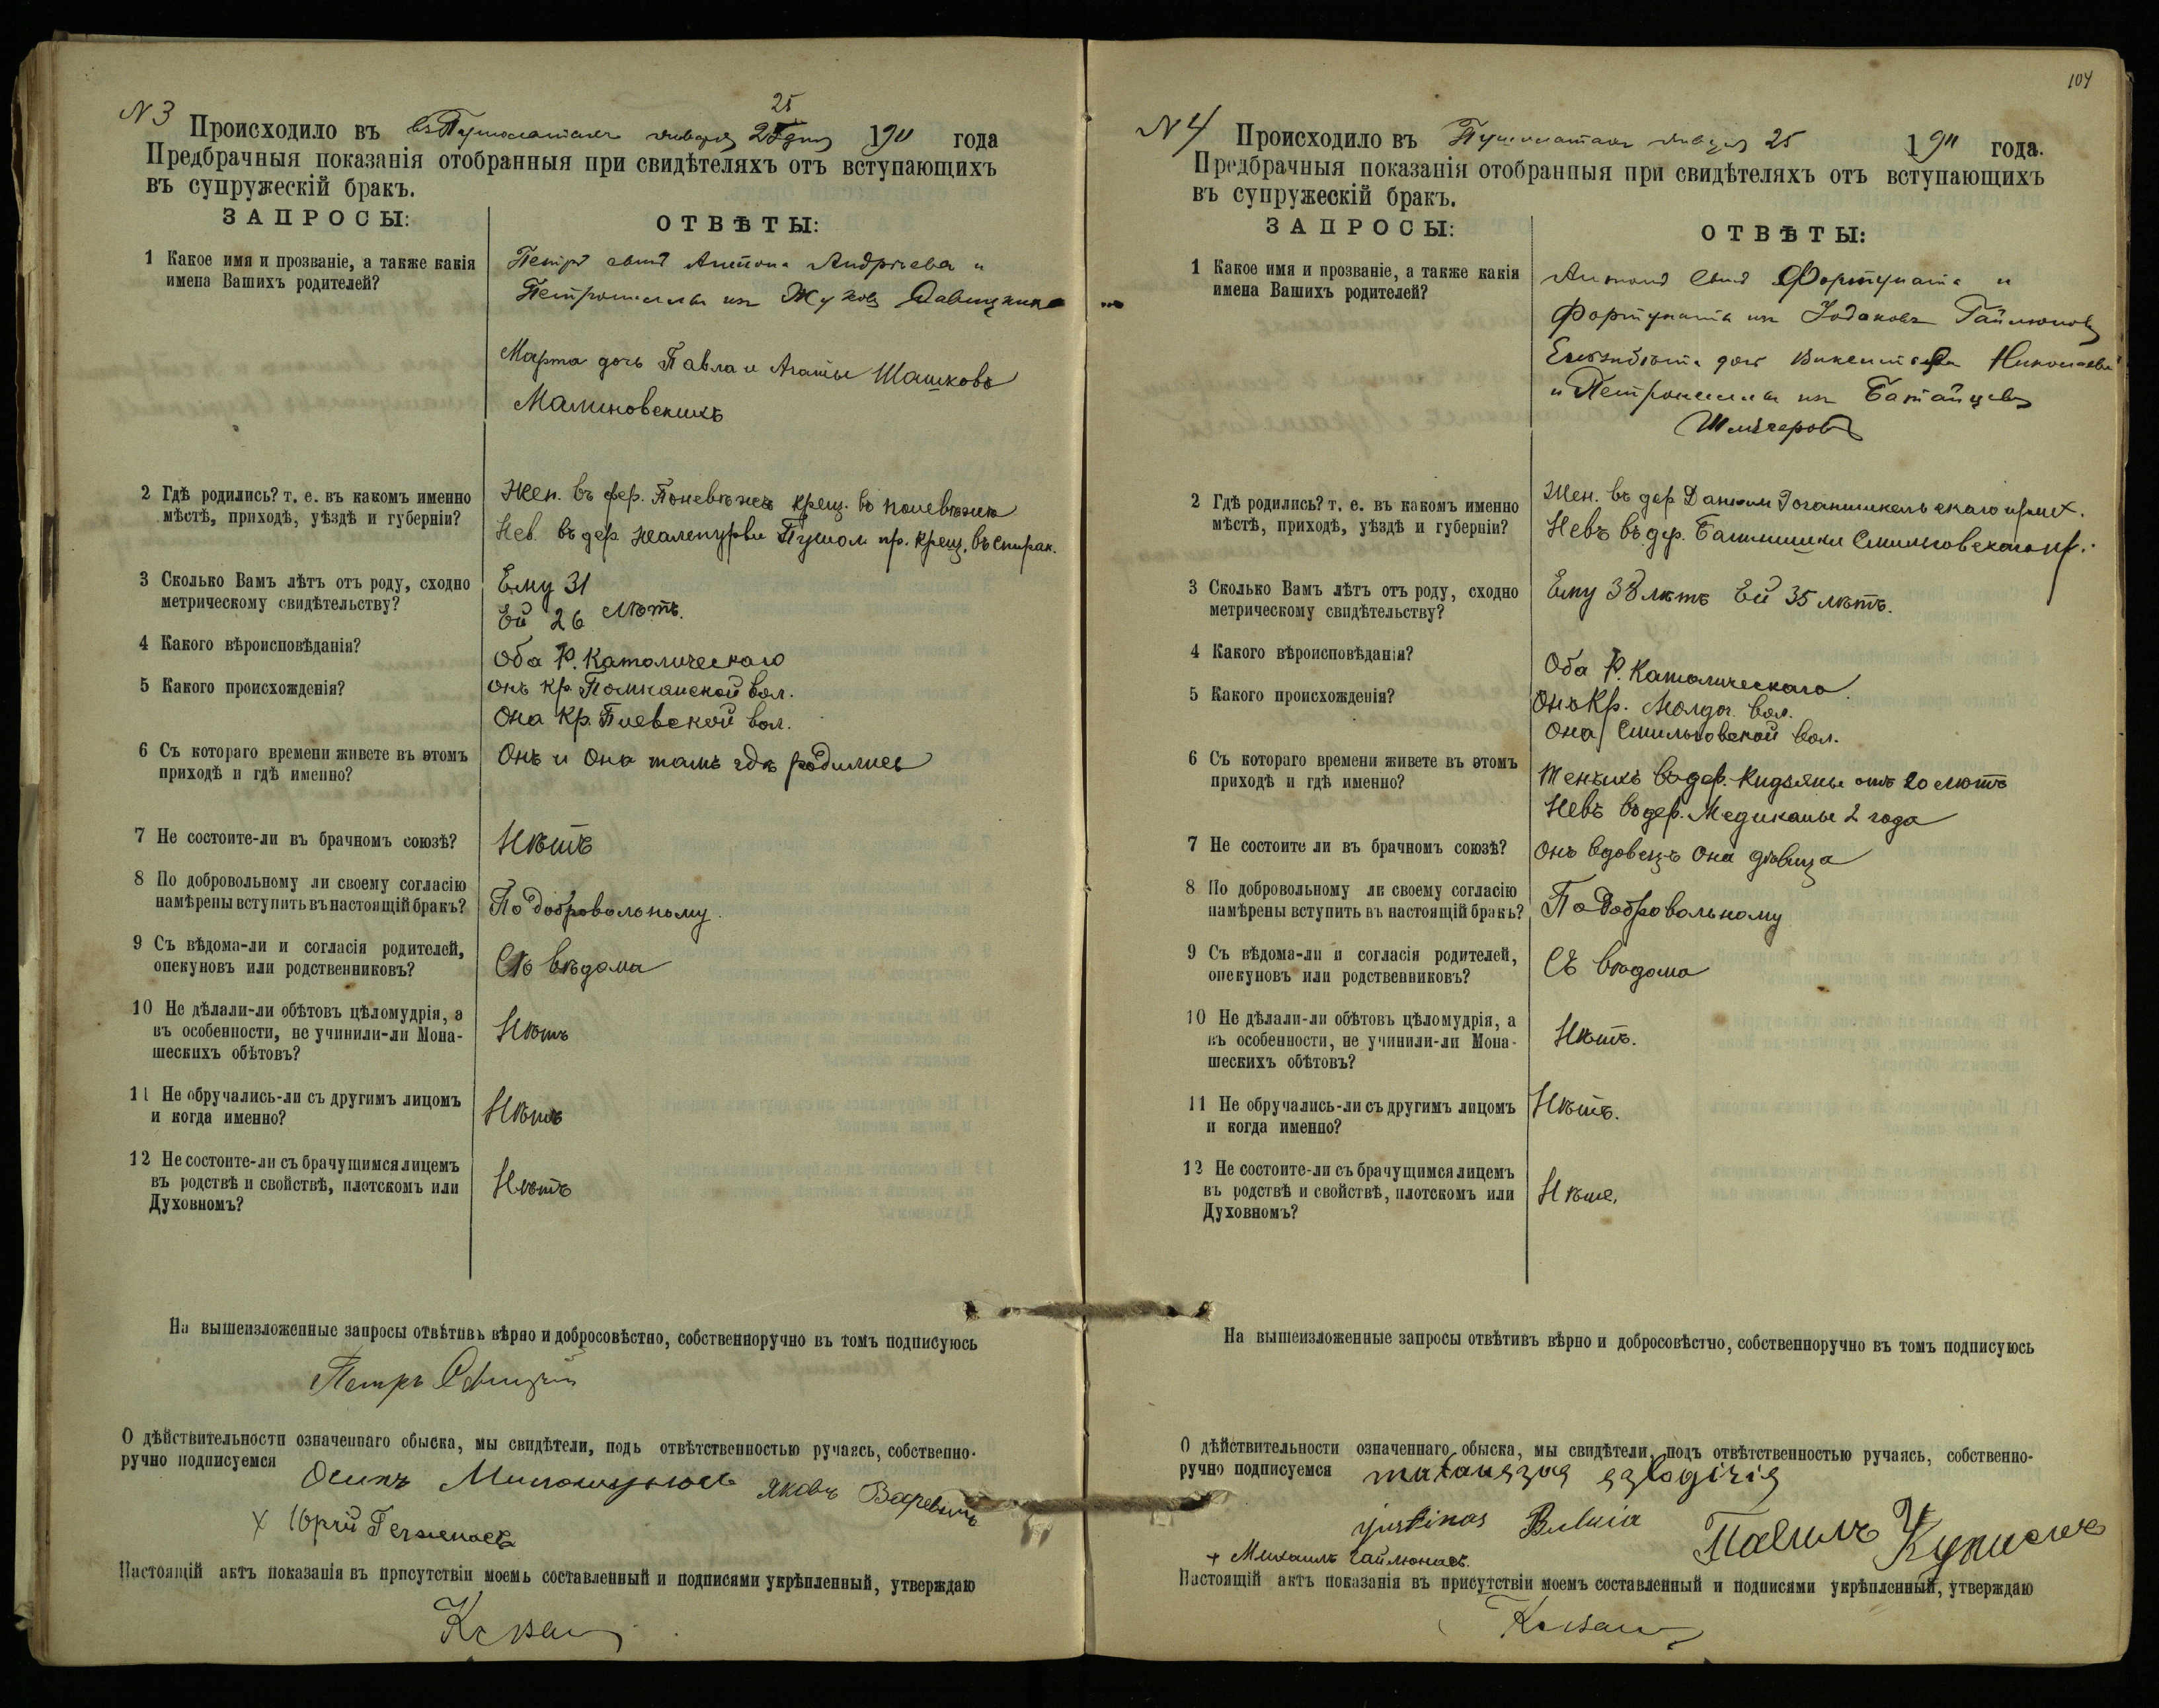 N 3
25
Происходило въ января 1911 года
Предбрачныя показанія отобранныя при свидѣтеляхъ отъ вступающихъ
въ супружескій бракъ.
ЗАПРОСЫ:
ОТВѢТЫ:
1 Какое имя и прозваніе, а также какія
имена Вашихъ родителей?
Петръ сынъ Антона Андрѣева и
Петронеллы изъ
Марта дочь Павла и Агаты Шашковъ
Малиновскихъ
2 Гдѣ родились? т. е. въ какомъ именно
мѣстѣ, приходѣ, уѣздѣ и губерніи?
Жен. въ дер. Поневѣжъ крещ. въ поневѣжѣ
Нев. въ дер. Пушол. пр. крещ. въ
3 Сколько Вамъ лѣтъ отъ роду, сходно
метрическому свидѣтельству?
Ему 31
Ей 26 лѣтъ.
4 Какого вѣроисповѣданія?
Оба Р. Католическаго
5 Какого происхожденія?
Онъ кр. вол.
Она кр. вол.
6 Съ котораго времени живете въ этомъ
приходѣ и гдѣ именно?
Онъ и Она тамъ гдѣ родились
7 Не состоите-ли въ брачномъ союзѣ?
Нѣтъ
8 По добровольному ли своему согласію
намѣрены вступить въ настоящій бракъ?
По добровольному.
9 Съ вѣдома-ли и согласія родителей,
опекуновъ или родственниковъ?
Съ вѣдома
10 Не дѣлали-ли обѣтовъ цѣломудрія, а
въ особенности, не учинили-ли Мона-
шескихъ обѣтовъ?
Нѣтъ
11 Не обручались-ли съ другимъ лицомъ
и когда именно?
Нѣтъ
12 Не состоите-ли съ брачущимся лицемъ
въ родствѣ и свойствѣ, плотскомъ или
Духовномъ?
Нѣтъ
На вышеизложенные запросы отвѣтивъ вѣрно и добросовѣстно, собственноручно въ томъ подписуюсь
Петръ
О дѣйствительности означеннаго обыска, мы свидѣтели, подъ отвѣтственностью ручаясь, собственно-
ручно подписуемся
Осипъ Яковъ
x Юрій
Настоящій актъ показанія въ присутствіи моемъ составленный и подписями укрѣпленный, утверждаю
104
N 4
Происходило въ января 25 1911 года.
Предбрачныя показанія отобранныя при свидѣтеляхъ отъ вступающихъ
въ супружескій бракъ.
ЗАПРОСЫ:
ОТВѢТЫ:
1 Какое имя и прозваніе, а также какія
имена Вашихъ родителей?
Антонъ сынъ Фортуната и
Фортунаты изъ Гайлюновъ
Елизабѣта дочь Викентія
и Петронеллы изъ
2 Гдѣ родились? т. е. въ какомъ именно
мѣстѣ, приходѣ, уѣздѣ и губерніи?
Жен. въ дер.
Невъ въ дер. Смильговскаго пр.
3 Сколько Вамъ лѣтъ отъ роду, сходно
метрическому свидѣтельству?
Ему 38 лѣтъ Ей 35 лѣтъ.
4 Какого вѣроисповѣданія?
Оба Р. Католическаго.
5 Какого происхожденія?
Онъ Кр. вол.
Она Смильговской вол.
6 Съ котораго времени живете въ этомъ
приходѣ и гдѣ именно?
Женихъ въ дер. отъ 20 лѣтъ
Невъ въ дер. 2 года
7 Не состоите ли въ брачномъ союзѣ?
Онъ вдовецъ Она дѣвица
8 По добровольному ли своему согласію
намѣрены вступить въ настоящій бракъ?
По добровольному
9 Съ вѣдома-ли и согласія родителей,
опекуновъ или родственниковъ?
Съ вѣдома
10 Не дѣлали-ли обѣтовъ цѣломудрія, а
въ особенности, не учинили-ли Мона-
шескихъ обѣтовъ?
Нѣтъ.
11 Не обручались-ли съ другимъ лицомъ
и когда именно?
Нѣтъ.
12 Не состоите-ли съ брачущимся лицемъ
въ родствѣ и свойствѣ, плотскомъ или
Духовномъ?
Нѣтъ.
На вышеизложенные запросы отвѣтивъ вѣрно и добросовѣстно, собственноручно въ томъ подписуюсь
О дѣйствительности означеннаго обыска, мы свидѣтели, подъ отвѣтственностью ручаясь, собственно-
ручно подписуемся
justinas
+ Михаилъ Гайлюнасъ.
Настоящій актъ показанія въ присутствіи моемъ составленный и подписями укрѣпленный, утверждаю